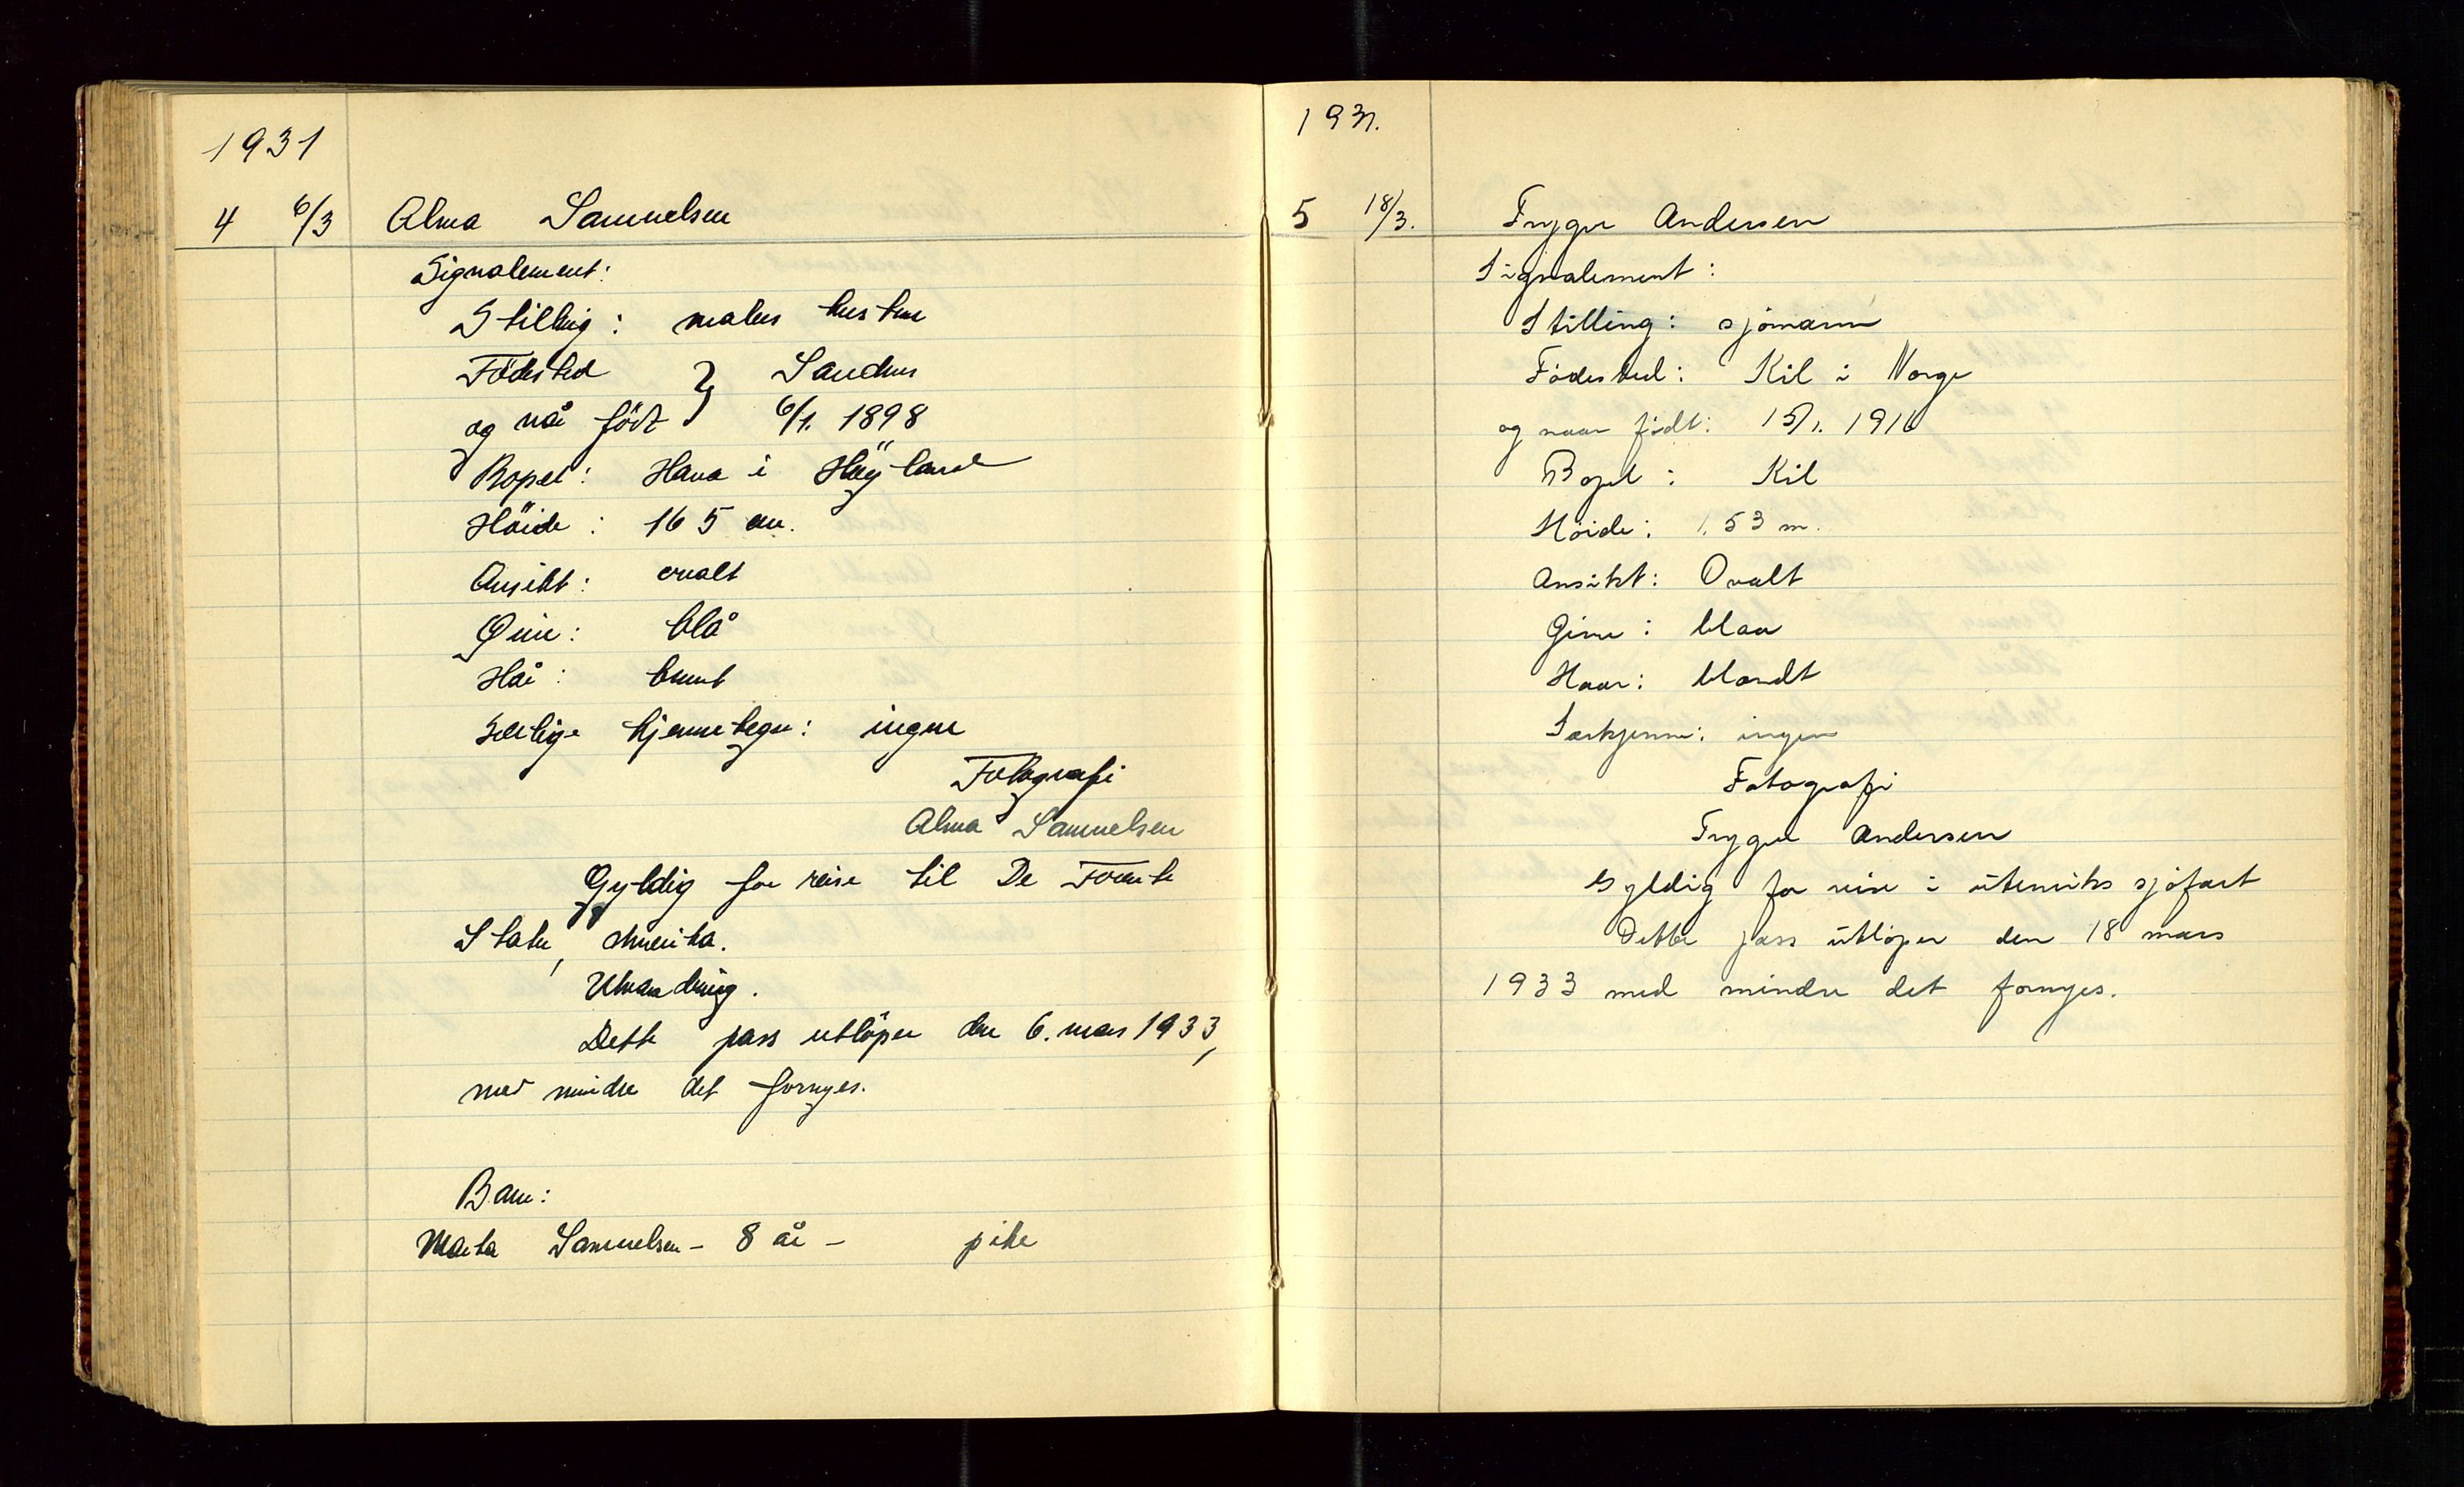 1931
4 6/3 Alma Samuelsen
Signalement:
Stilling: malers hustru
Födested } Sandnes
og når født 6/1. 1898
Bopel: Hana i Høyland
Höide: 165 cm.
Ansikt: ovalt
Øine: blå
Hår: brunt
Særlige kjennetegn: ingen
Fotografi
Alma Samuelsen
Gyldig for reise til De Forente
Stater, Amerika.
Utvandring.
Dette pass utlöper den 6. mars 1933,
med mindre det fornyes.
Barn:
Marta Samuelsen - 8 år - pike
1931.
5 18/3. Trygve Andersen
Signalement:
Stilling: sjömann
Födested: Kil i Norge
og naar födt: 15/1. 1916
Bopel: Kil
Höide: 1.53 m.
Ansikt: Ovalt
Öine: blaa
Haar: blondt
Særkjenne: ingen
Fotografi
Trygve Andersen
Gyldig for reise i utenriks sjöfart
Dette pass utlöper den 18 mars
1933 med mindre det fornyes.